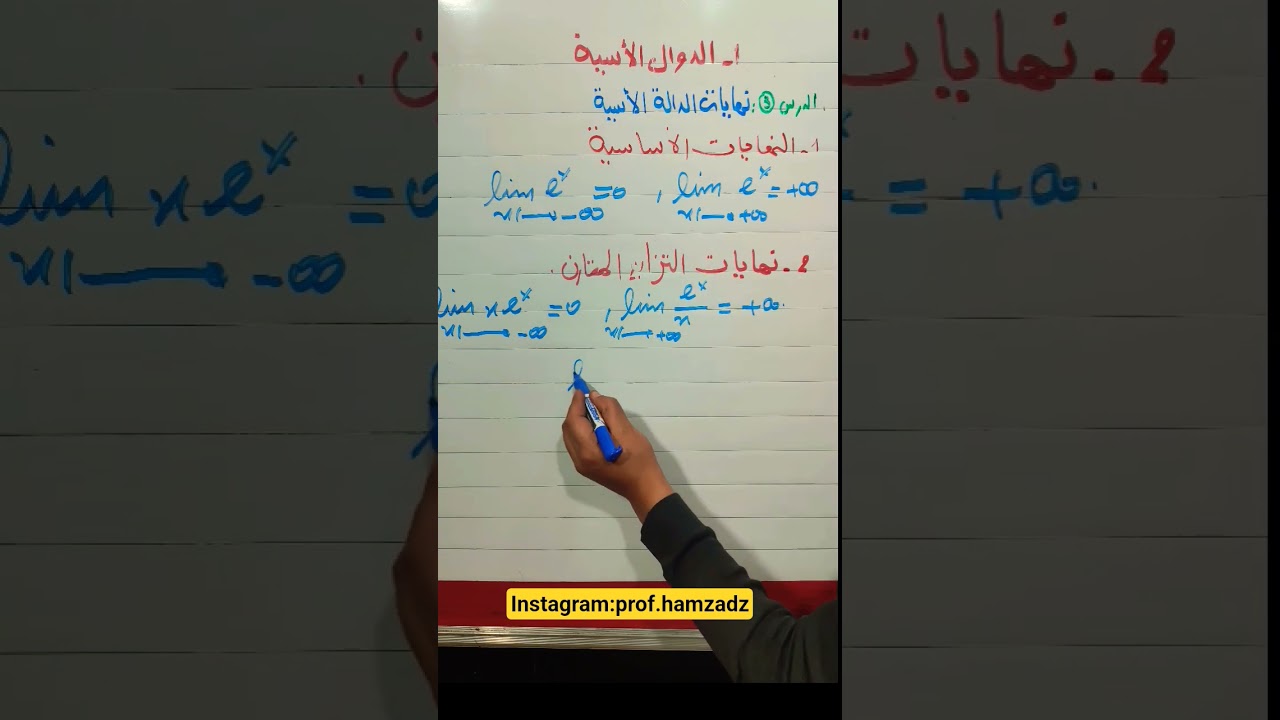 1- الدوال الأسية
الدرس ③: نهايات الدالة الأسية
1- النهايات الأساسية
lim eˣ = +∞ , lim eˣ = 0
x→+∞ x→-∞
2- نهايات التزايد المقارن.
lim eˣ/x = +∞ , lim x eˣ = 0
x→+∞ x→-∞
Instagram:prof.hamzadz